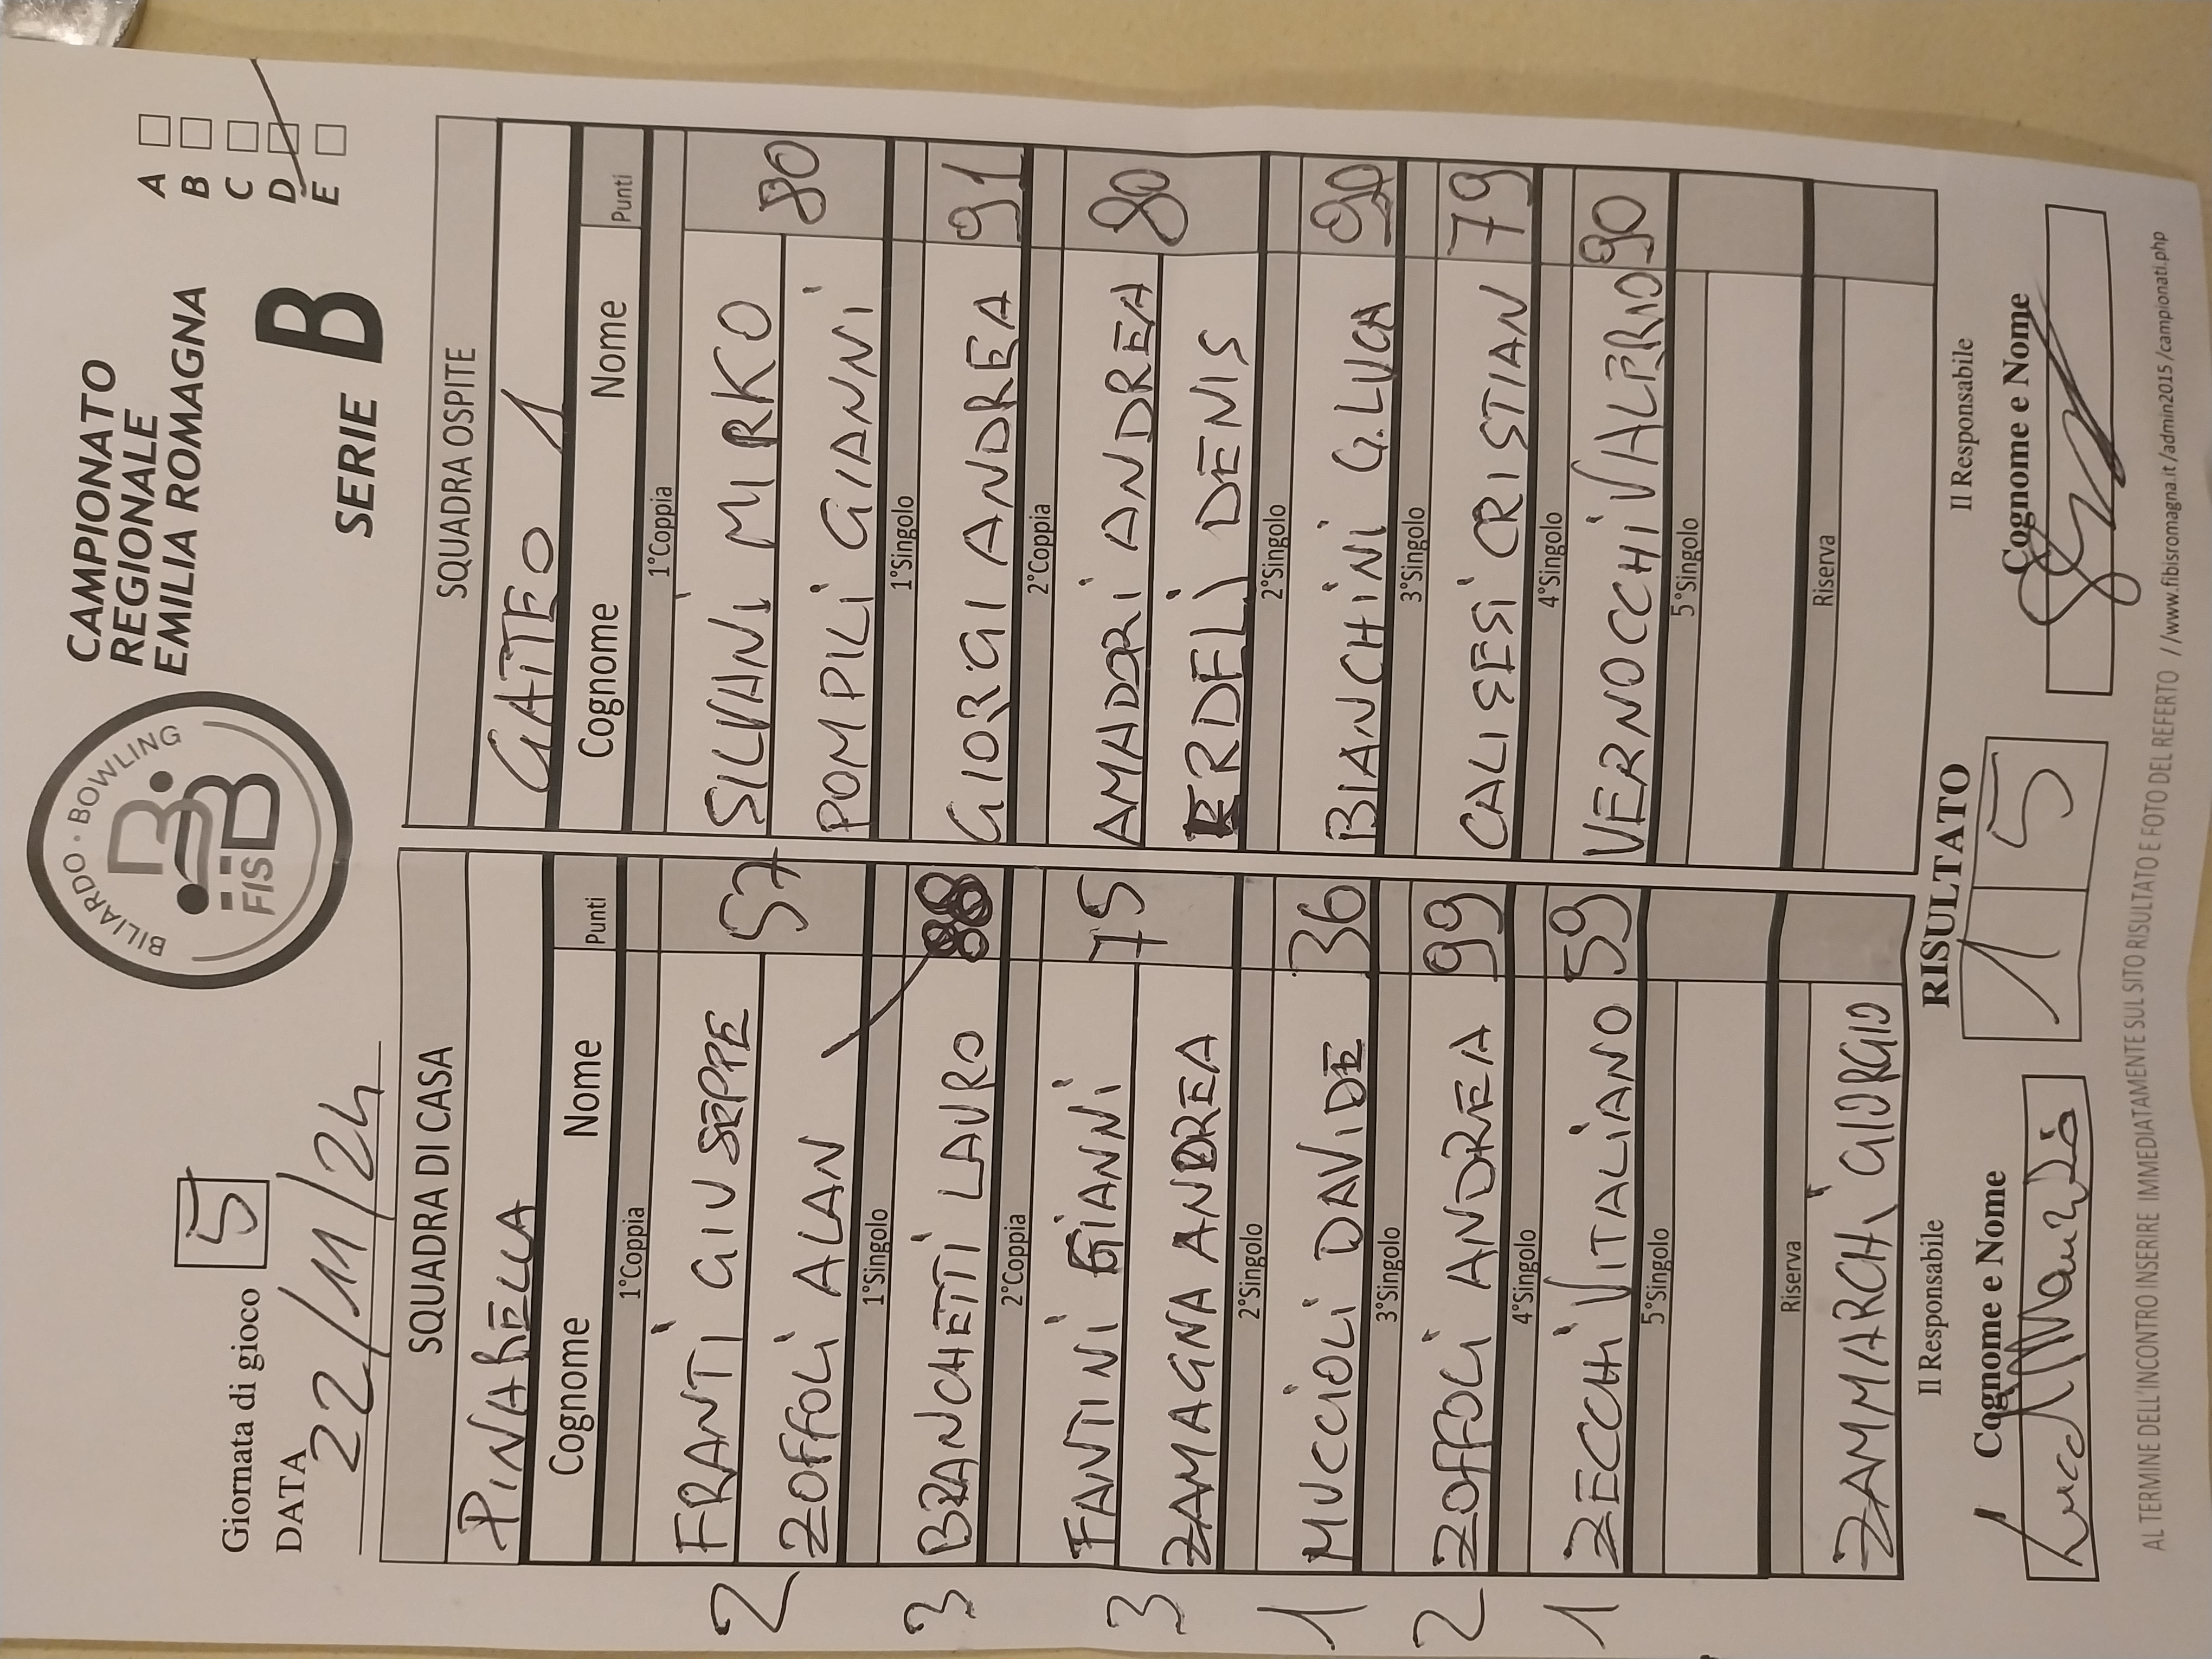 BILIARDO · BOWLING
FISBB
CAMPIONATO
REGIONALE
EMILIA ROMAGNA
SERIE B
A
B
C
D
E
Giornata di gioco 5
DATA 22/11/24
SQUADRA DI CASA
PINARELLA
Cognome Nome Punti
1°Coppia
2 FRANTI GIUSEPPE 57
ZOFFOLI ALAN
1°Singolo
3 BRANCHETTI LAURO
2°Coppia
FANTINI GIANNI 75
3 ZAMAGNA ANDREA
2°Singolo
1 MUCCIOLI DAVIDE 36
3°Singolo
2 ZOFFOLI ANDREA 99
4°Singolo
1 ZECCHI VITALIANO 59
5°Singolo
Riserva
ZAMMARCHI GIORGIO
SQUADRA OSPITE
GATTEO 1
Cognome Nome Punti
1°Coppia
SILVANI MIRKO 80
POMPILI GIANNI
1°Singolo
GIORGI ANDREA 91
2°Coppia
AMADORI ANDREA 80
ERDELI DENIS
2°Singolo
BIANCHINI G.LUCA 90
3°Singolo
CALISESI CRISTIAN 79
4°Singolo
VERNOCCHI VALERIO 90
5°Singolo
Riserva
Il Responsabile
Cognome e Nome
RISULTATO
1 5
Il Responsabile
Cognome e Nome
AL TERMINE DELL'INCONTRO INSERIRE IMMEDIATAMENTE SUL SITO RISULTATO E FOTO DEL REFERTO //www.fibisromagna.it/admin2015/campionati.php